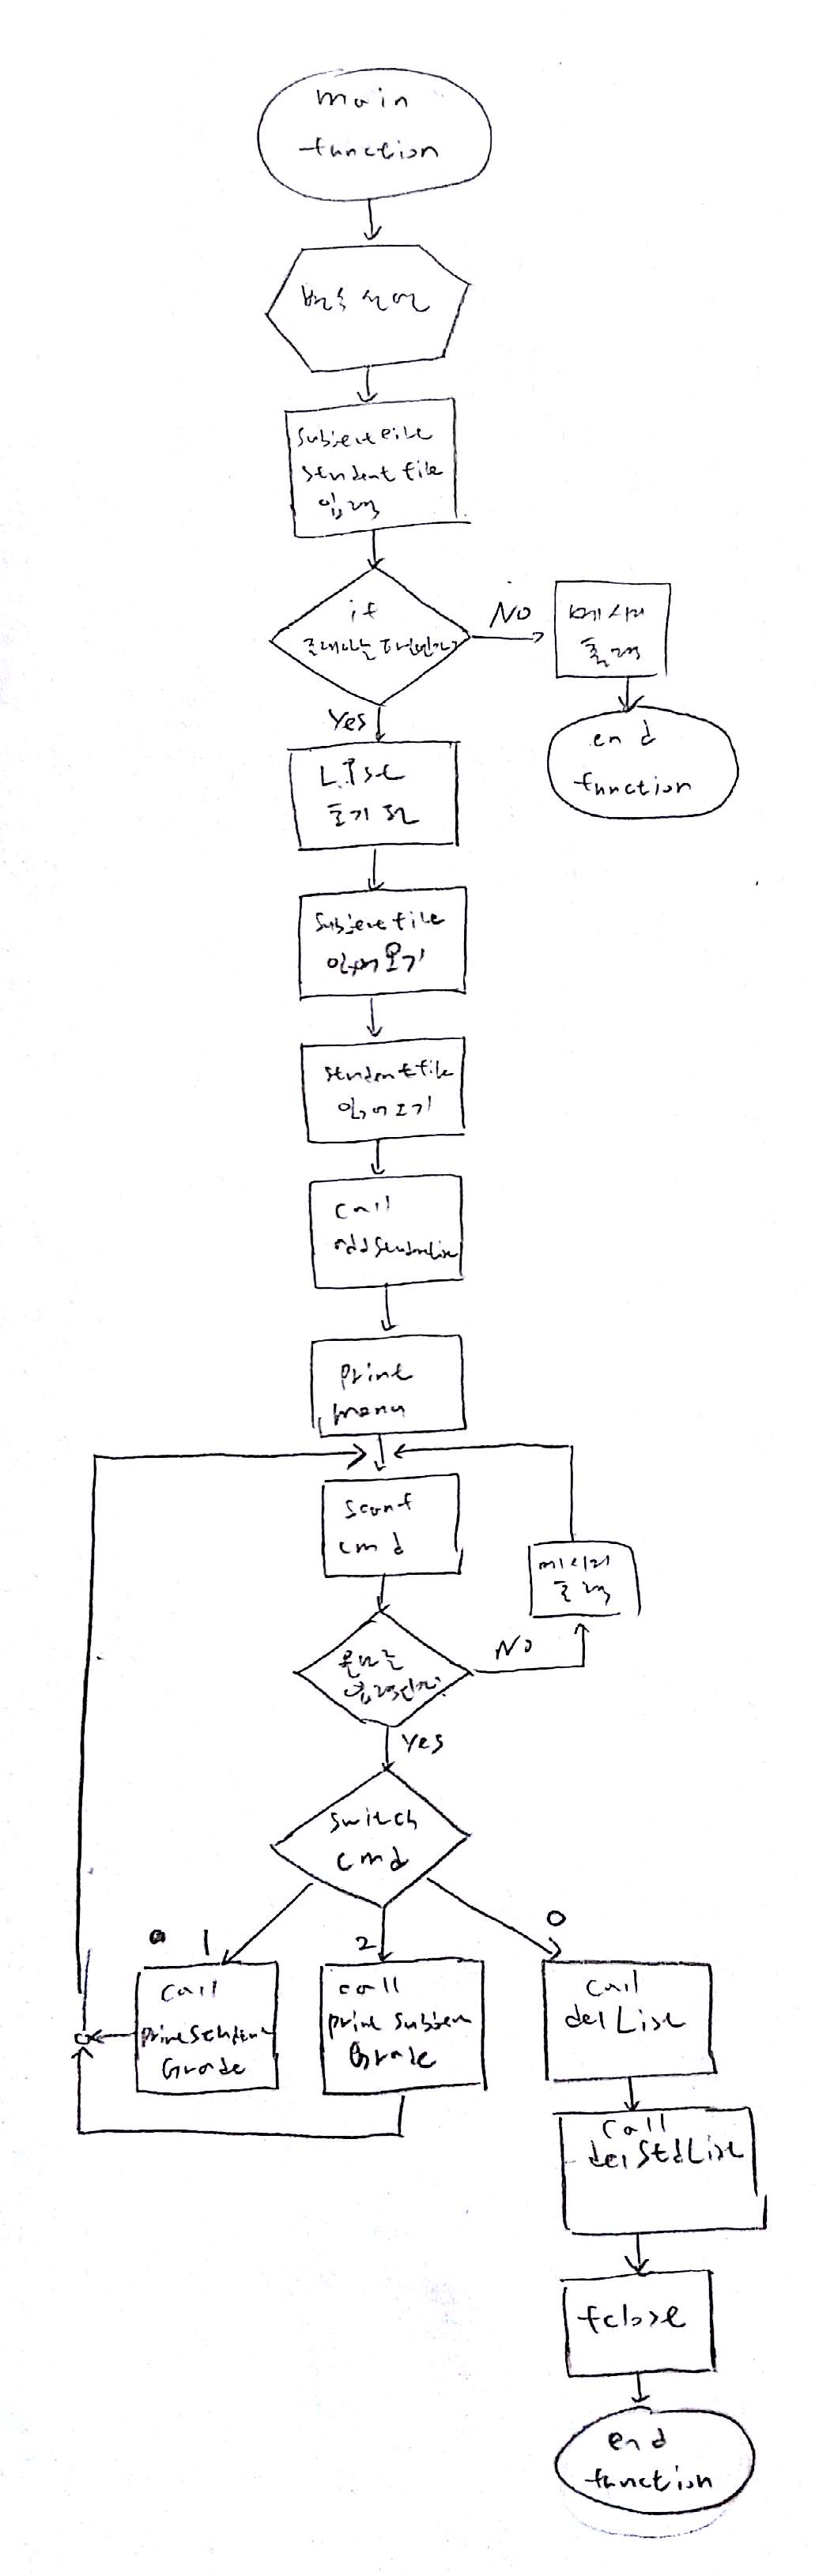 main
function
변수 선언
Subject file
Student file
입력
if
존재하는 파일인가?
No
메시지
출력
end
function
Yes
List
초기화
Subject file
읽어오기
Student file
읽어오기
call
add
print
menu
scanf
cmd
메시지
출력
올바른
입력인가?
No
Yes
switch
cmd
1
2
0
call
print Student
Grade
call
print Subject
Grade
call
delList
call
delStdList
fclose
end
function